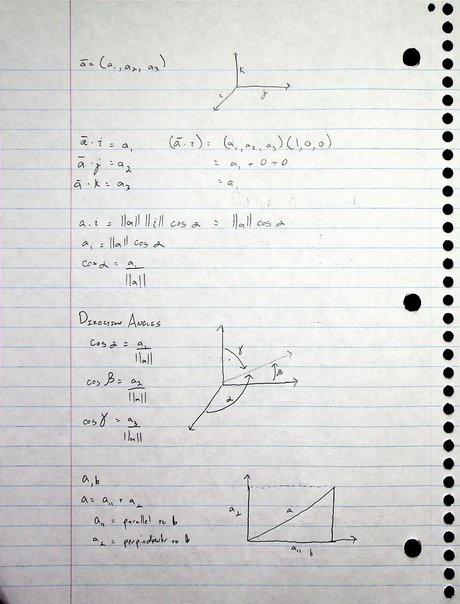 ā = (a₁, a₂, a₃)
k
i
j
ā · i = a₁ (ā · i) = (a₁, a₂, a₃)(1, 0, 0)
ā · j = a₂ = a₁ + 0 + 0
ā · k = a₃ = a₁
a · i = ||a|| ||i|| cos α = ||a|| cos α
a₁ = ||a|| cos α
cos α = a₁ / ||a||
DIRECTION ANGLES
cos α = a₁ / ||a||
cos β = a₂ / ||a||
cos γ = a₃ / ||a||
γ
β
α
a, b
a = a₁₁ + a⊥
a₁₁ = parallel to b
a⊥ = perpindicular to b
a⊥
a
a₁₁ b